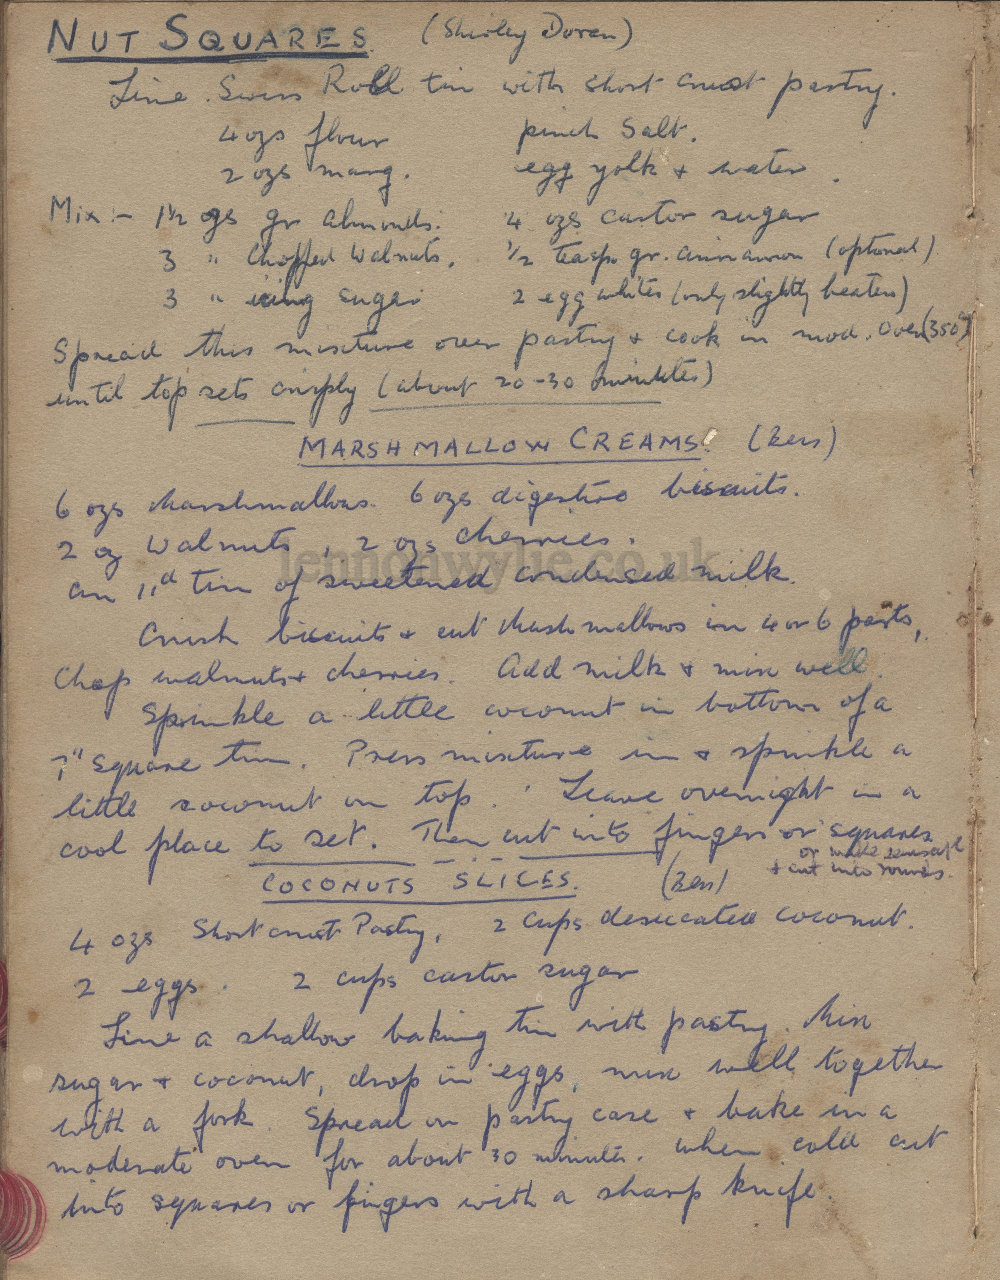 NUT SQUARES (Shirley Doran)
Line Swiss Roll tin with short crust pastry.
4 ozs flour pinch salt.
2 ozs marg. egg yolk & water.
Mix :- 1½ ozs gr almonds. 4 ozs castor sugar
3 " Chopped Walnuts. ½ teasp gr. cinnamon (optional)
3 " icing sugar 2 egg whites (only slightly beaten)
Spread this mixture over pastry & cook in mod. oven (350°)
until top sets crisply (about 20-30 minutes)
MARSHMALLOW CREAMS! (Bers)
6 ozs Marshmallows. 6 ozs digestive biscuits.
2 oz Walnuts, 2 ozs cherries.
lennonwylie.co.uk
an 11d tin of sweetened condensed milk.
Crush biscuits & cut Marshmallows in 4 or 6 parts,
Chop walnuts & cherries. Add milk & mix well.
Sprinkle a little coconut in bottom of a
7" square tin. Press mixture in & sprinkle a
little coconut on top. Leave overnight in a
cool place to set. Then cut into fingers or squares
or make
& cut into rounds.
COCONUTS SLICES. (Bers)
4 ozs Short crust Pastry, 2 cups desiccated coconut.
2 eggs. 2 cups castor sugar
Line a shallow baking tin with pastry. Mix
sugar & coconut, drop in eggs, mix well together
with a fork. Spread on pastry case & bake in a
moderate oven for about 30 minutes. When cold cut
into squares or fingers with a sharp knife.